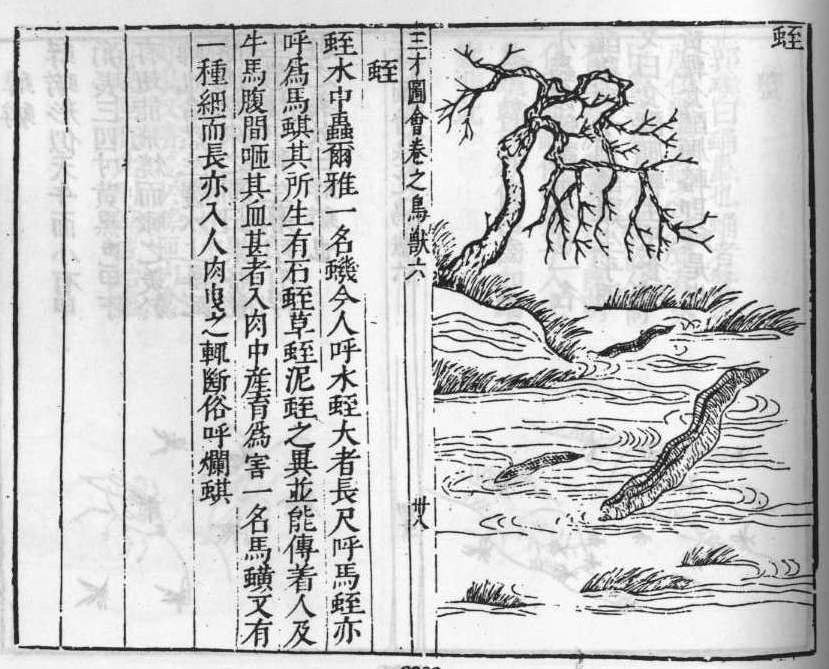 蛭
三才圖會卷之鳥獸六
廿八
蛭
蛭水中蟲爾雅一名蟣今人呼水蛭大者長尺呼馬蛭亦
呼爲馬蜞其所生有石蛭草蛭泥蛭之異並能傳着人及
牛馬腹間咂其血甚者入肉中產育爲害一名馬蟥又有
一種細而長亦入人肉曳之輒斷俗呼爛蜞